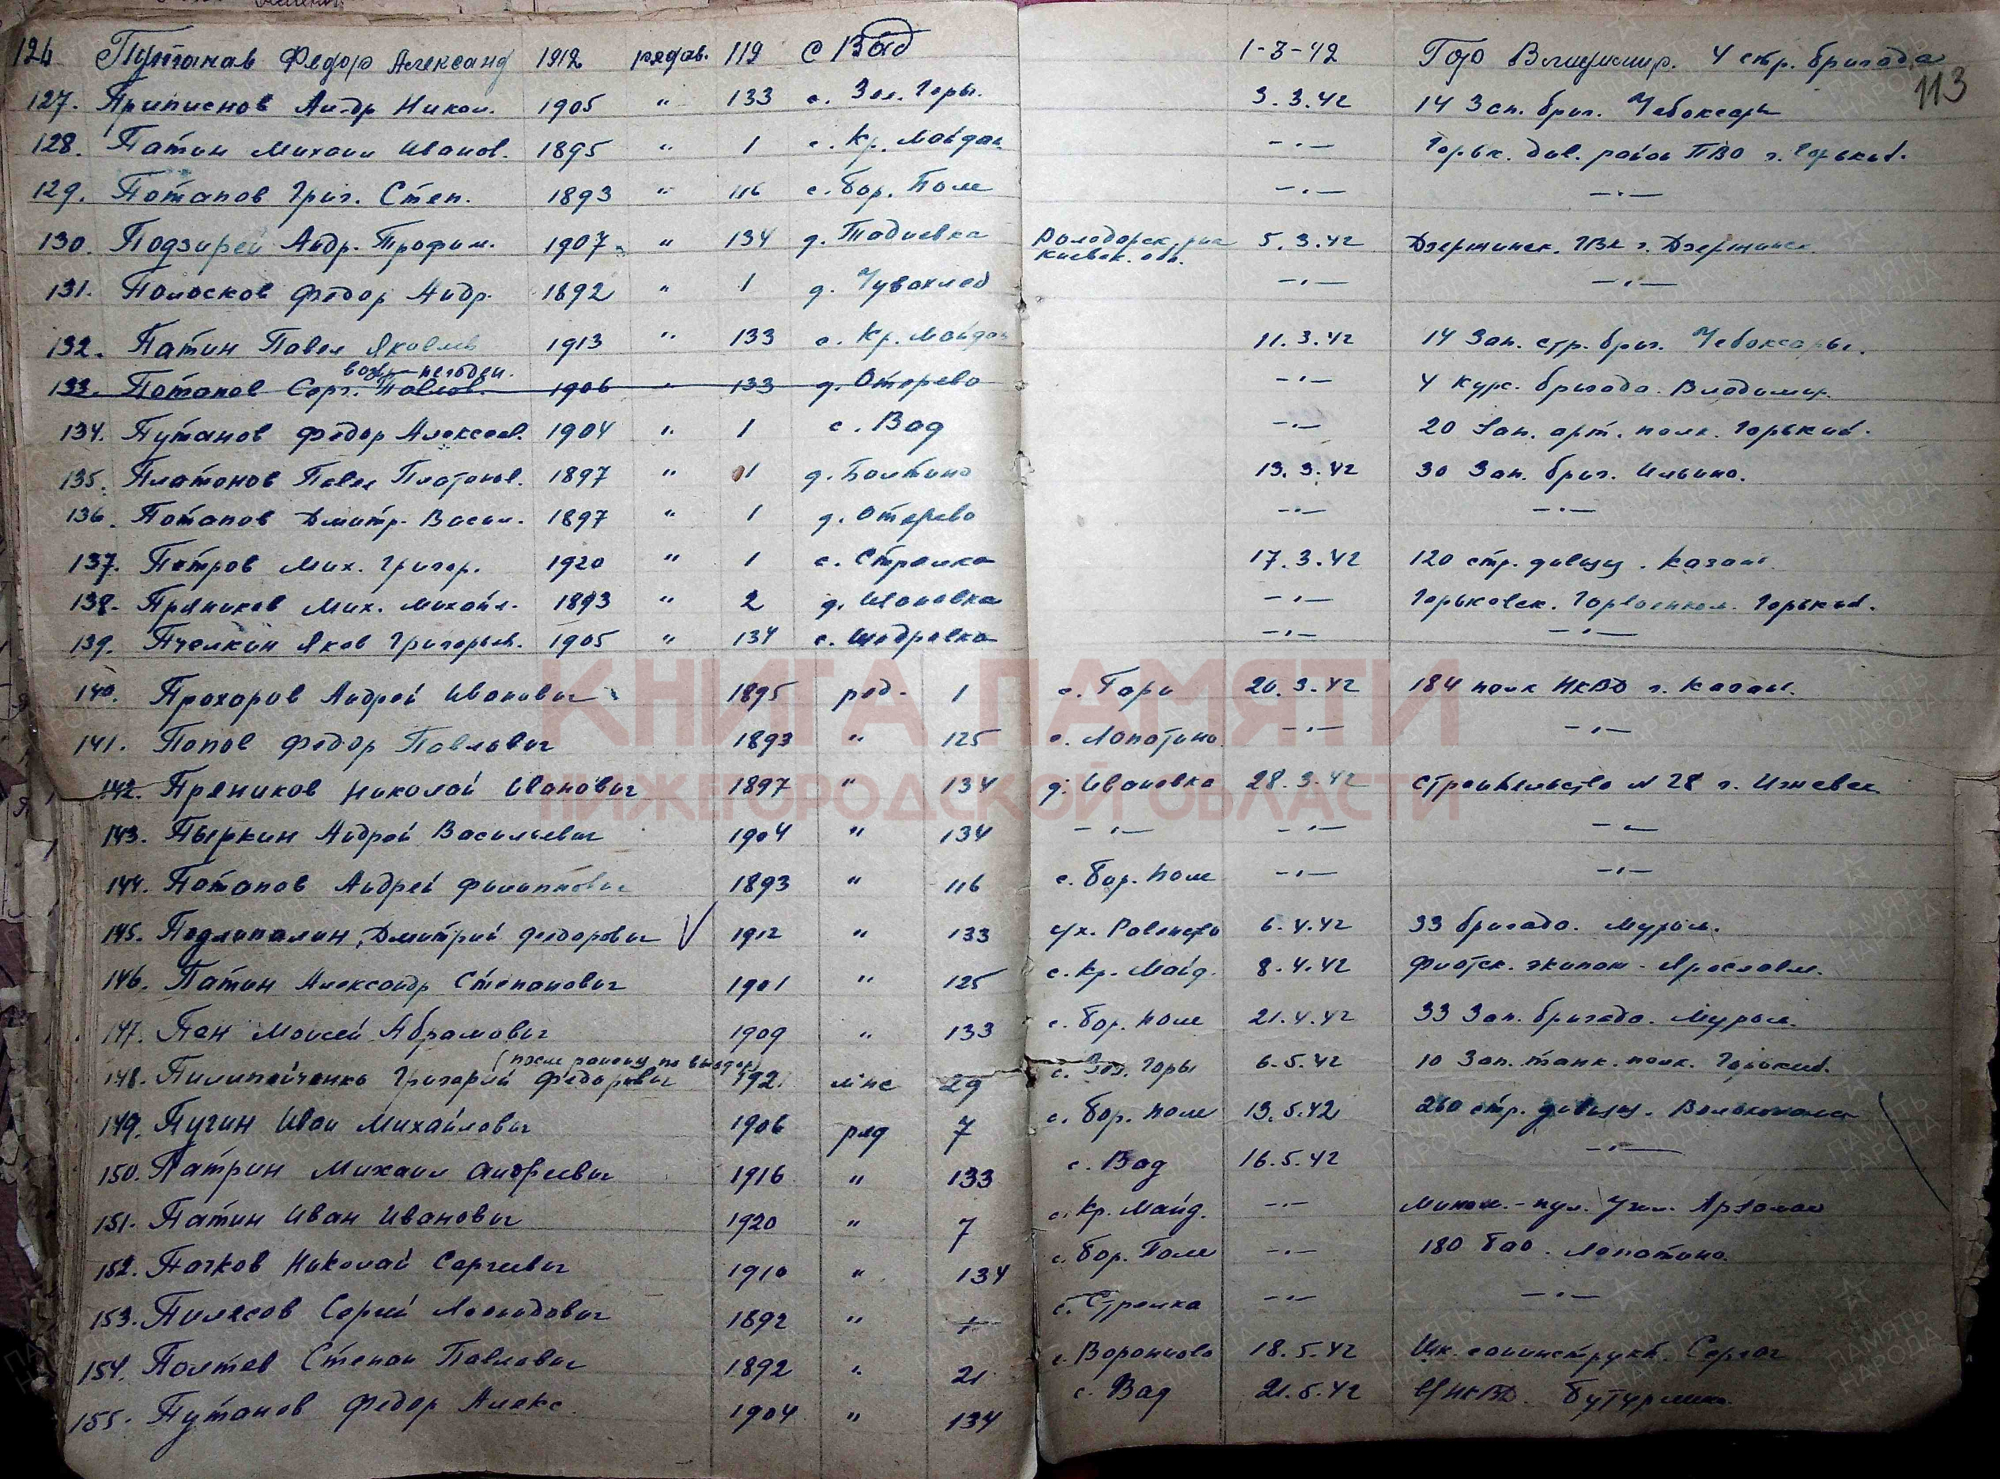 113
126 Путанов Федор Александ 1912 рядов. 119 с Вад 1-3-42 Гор Владимир. 4 стр. бригада
127. Приписнов Андр Никол. 1905 " 133 с. Зел. Горы. 3.3.42 14 Зап. бриг. Чебоксары
128. Патин Михаил Иванов. 1895 " 1 с. Кр. Майдан -"- Горьк. див. район ПВО г. Горький.
129. Потапов Григ. Степ. 1893 " 116 с. Бор. Поле -"- -"-
130. Подзирей Андр. Трофим. 1907 " 134 д. Тадиевка Володарск. р-на Киевск. обл. 5.3.42 Дзержинск. ГВК г. Дзержинск
131. Полосков Федор Андр. 1892 " 1 д. Чувахлей -"- -"-
132. Патин Павел Яковлев 1913 " 133 с. Кр. Майдан 11.3.42 14 Зап. стр. бриг. Чебоксары.
133. Потапов Серг. Павлов. 1906 133 д. Отарево -"- 4 курс. бригада. Владимир.
134. Путанов Федор Алексеев. 1904 " 1 с. Вад -"- 20 Зап. арт. полк. Горький.
135. Платонов Павел Платонов. 1897 " 1 д. Болтино 13.3.42 30 Зап. бриг. Ильино.
136. Потапов Дмитр. Васил. 1897 " 1 д. Отарево -"- -"-
137. Петров Мих. Григор. 1920 " 1 с. Стрелка 17.3.42 120 стр. дивиз. Казань
138. Пряников Мих. Михайл. 1893 " 2 д. Ивановка -"- Горьковск. Горвоенком. Горький.
139. Пчелкин Яков Григорьев. 1905 " 134 с. Шедровка -"- -"-
140. Прохоров Андрей Иванович 1895 ряд. 1 с. Гари 20.3.42 184 полк НКВД г. Казань.
141. Попов Федор Павлович 1893 " 125 с. Лопатино -"- -"-
КНИГА ПАМЯТИ
НИЖЕГОРОДСКОЙ ОБЛАСТИ
142. Пряников Николай Иванович 1897 " 134 д. Ивановка 28.3.42 Строительство №28 г. Ижевск
143. Пыркин Андрей Васильевич 1904 " 134 -"- -"- -"-
144. Потапов Андрей Филиппович 1893 " 116 с. Бор. Поле -"- -"-
145. Подлипалин Дмитрий Федорович V 1912 " 133 с/х. Равенство 6.4.42 33 бригада. Муром.
146. Патин Александр Степанович 1901 " 125 с. Кр. Майд. 8.4.42 Флотск. экипаж - Ярославль.
147. Пен Моисей Абрамович 1909 " 133 с. Бор. Поле 21.4.42 33 Зап. бригада. Муром.
148. Пилипейченко Григорий Федорович 1921 мнс 29 с. Зел. Горы 6.5.42 10 Зап. танк. полк. Горький.
149. Пугин Иван Михайлович 1906 ряд 7 с. Бор. Поле 13.5.42 260 стр. дивиз.
150. Патрин Михаил Андреевич 1916 " 133 с. Вад 16.5.42 -"-
151. Патин Иван Иванович 1920 " 7 с. Кр. Майд. -"- Мином.-пул. Учил. Арзамас
152. Пачков Николай Сергеевич 1910 " 134 с. Бор. Поле -"- 180 бао. Лопатино.
153. Пилясов Сергей Леонидович 1892 " 7 с. Стрелка -"- -"-
154. Полтев Степан Павлович 1892 " 21 с. Вороново 18.5.42 Сергач
155. Путанов Федор Алекс. 1904 " 134 с. Вад 21.5.42 НКВД. Бутурлино.